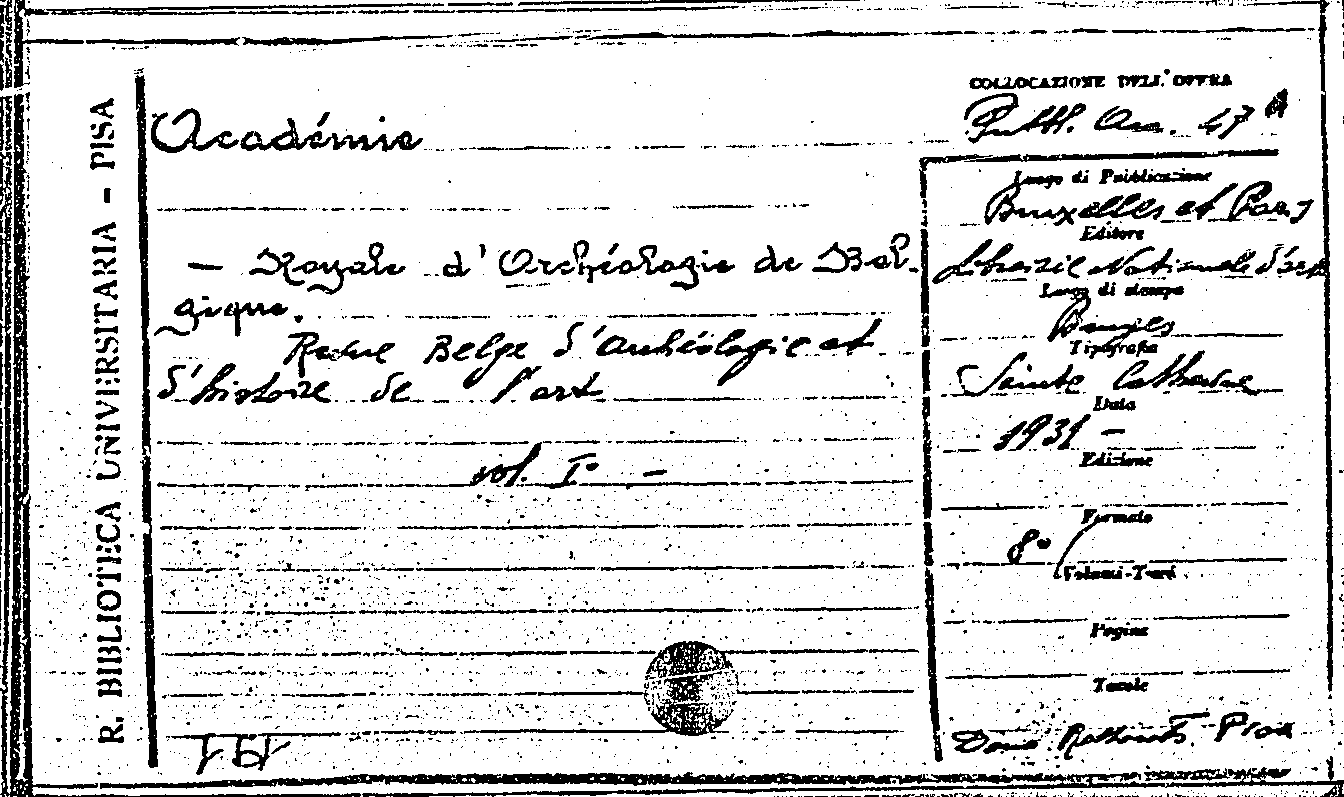 R. BIBLIOTECA UNIVERSITARIA - PISA
COLLOCAZIONE DELL'OPERA
Pubbl. Acc. 47
Académie
— Royale d'Archéologie de Bel-
gique.
Revue Belge d'Archéologie et
d'histoire de l'art
vol. I° —
Luogo di Pubblicazione
Bruxelles et Paris
Editore
Librairie Nationale d'art
Luogo di stampa
Bruges
Tipografia
Sainte Catherine
Data
1931 —
Edizione
Formato
8°
Volumi-Tomi
Pagine
Tavole
Dono